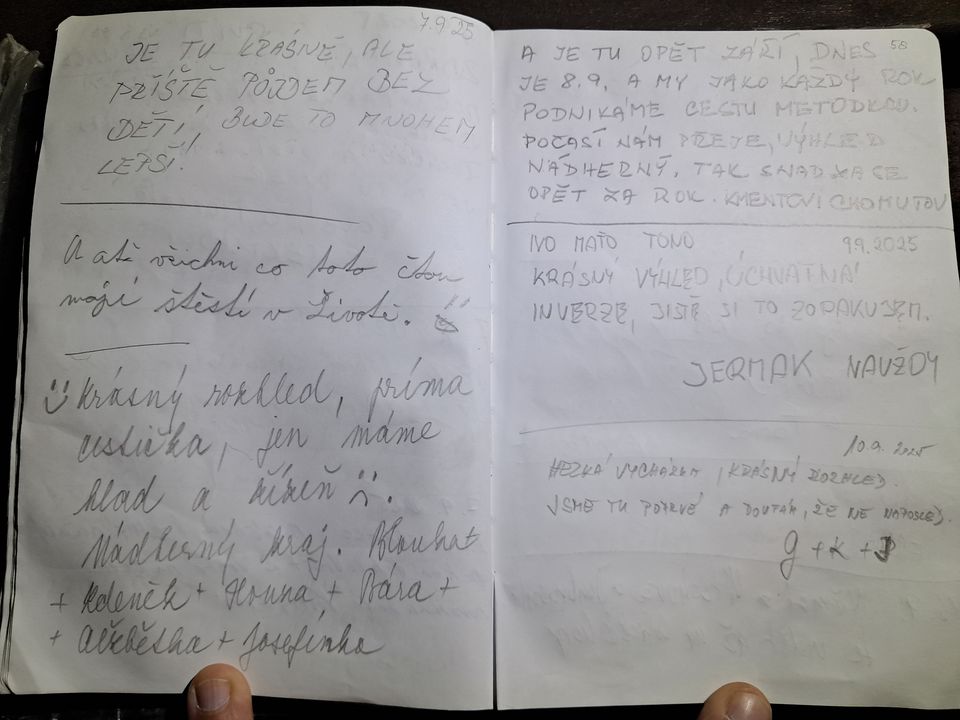 7.9.25
JE TU KRÁSNĚ, ALE
PŘÍŠTĚ PŮJDEM BEZ
DĚTÍ, BUDE TO MNOHEM
LEPŠÍ!
A ať všichni co toto čtou
mají štěstí v životě.
Krásný rozhled, príma
cestička, jen máme
hlad a žízeň :(.
Nádherný kraj. Blanka+
+ Zdeněk + Hanna + Bára +
+ Alžbětka + Josefínka
58
A JE TU OPĚT ZÁŘÍ, DNES
JE 8.9. A MY JAKO KAŽDÝ ROK
PODNIKÁME CESTU METODKOU.
POČASÍ NÁM PŘEJE, VÝHLED
NÁDHERNÝ. TAK SNAD ZASE
OPĚT ZA ROK. KMENTOVI CHOMUTOV
IVO MAŤO TONO 9.9.2025
KRÁSNÝ VÝHLED, ÚCHVATNÁ
INVERZE, JISTĚ SI TO ZOPAKUJEM.
JERMAK NAVŽDY
10.9.2025
HEZKÁ VYCHÁZKA, KRÁSNÝ ROZHLED.
JSME TU POPRVÉ A DOUFÁM, ŽE NE NAPOSLED.
G + K + J